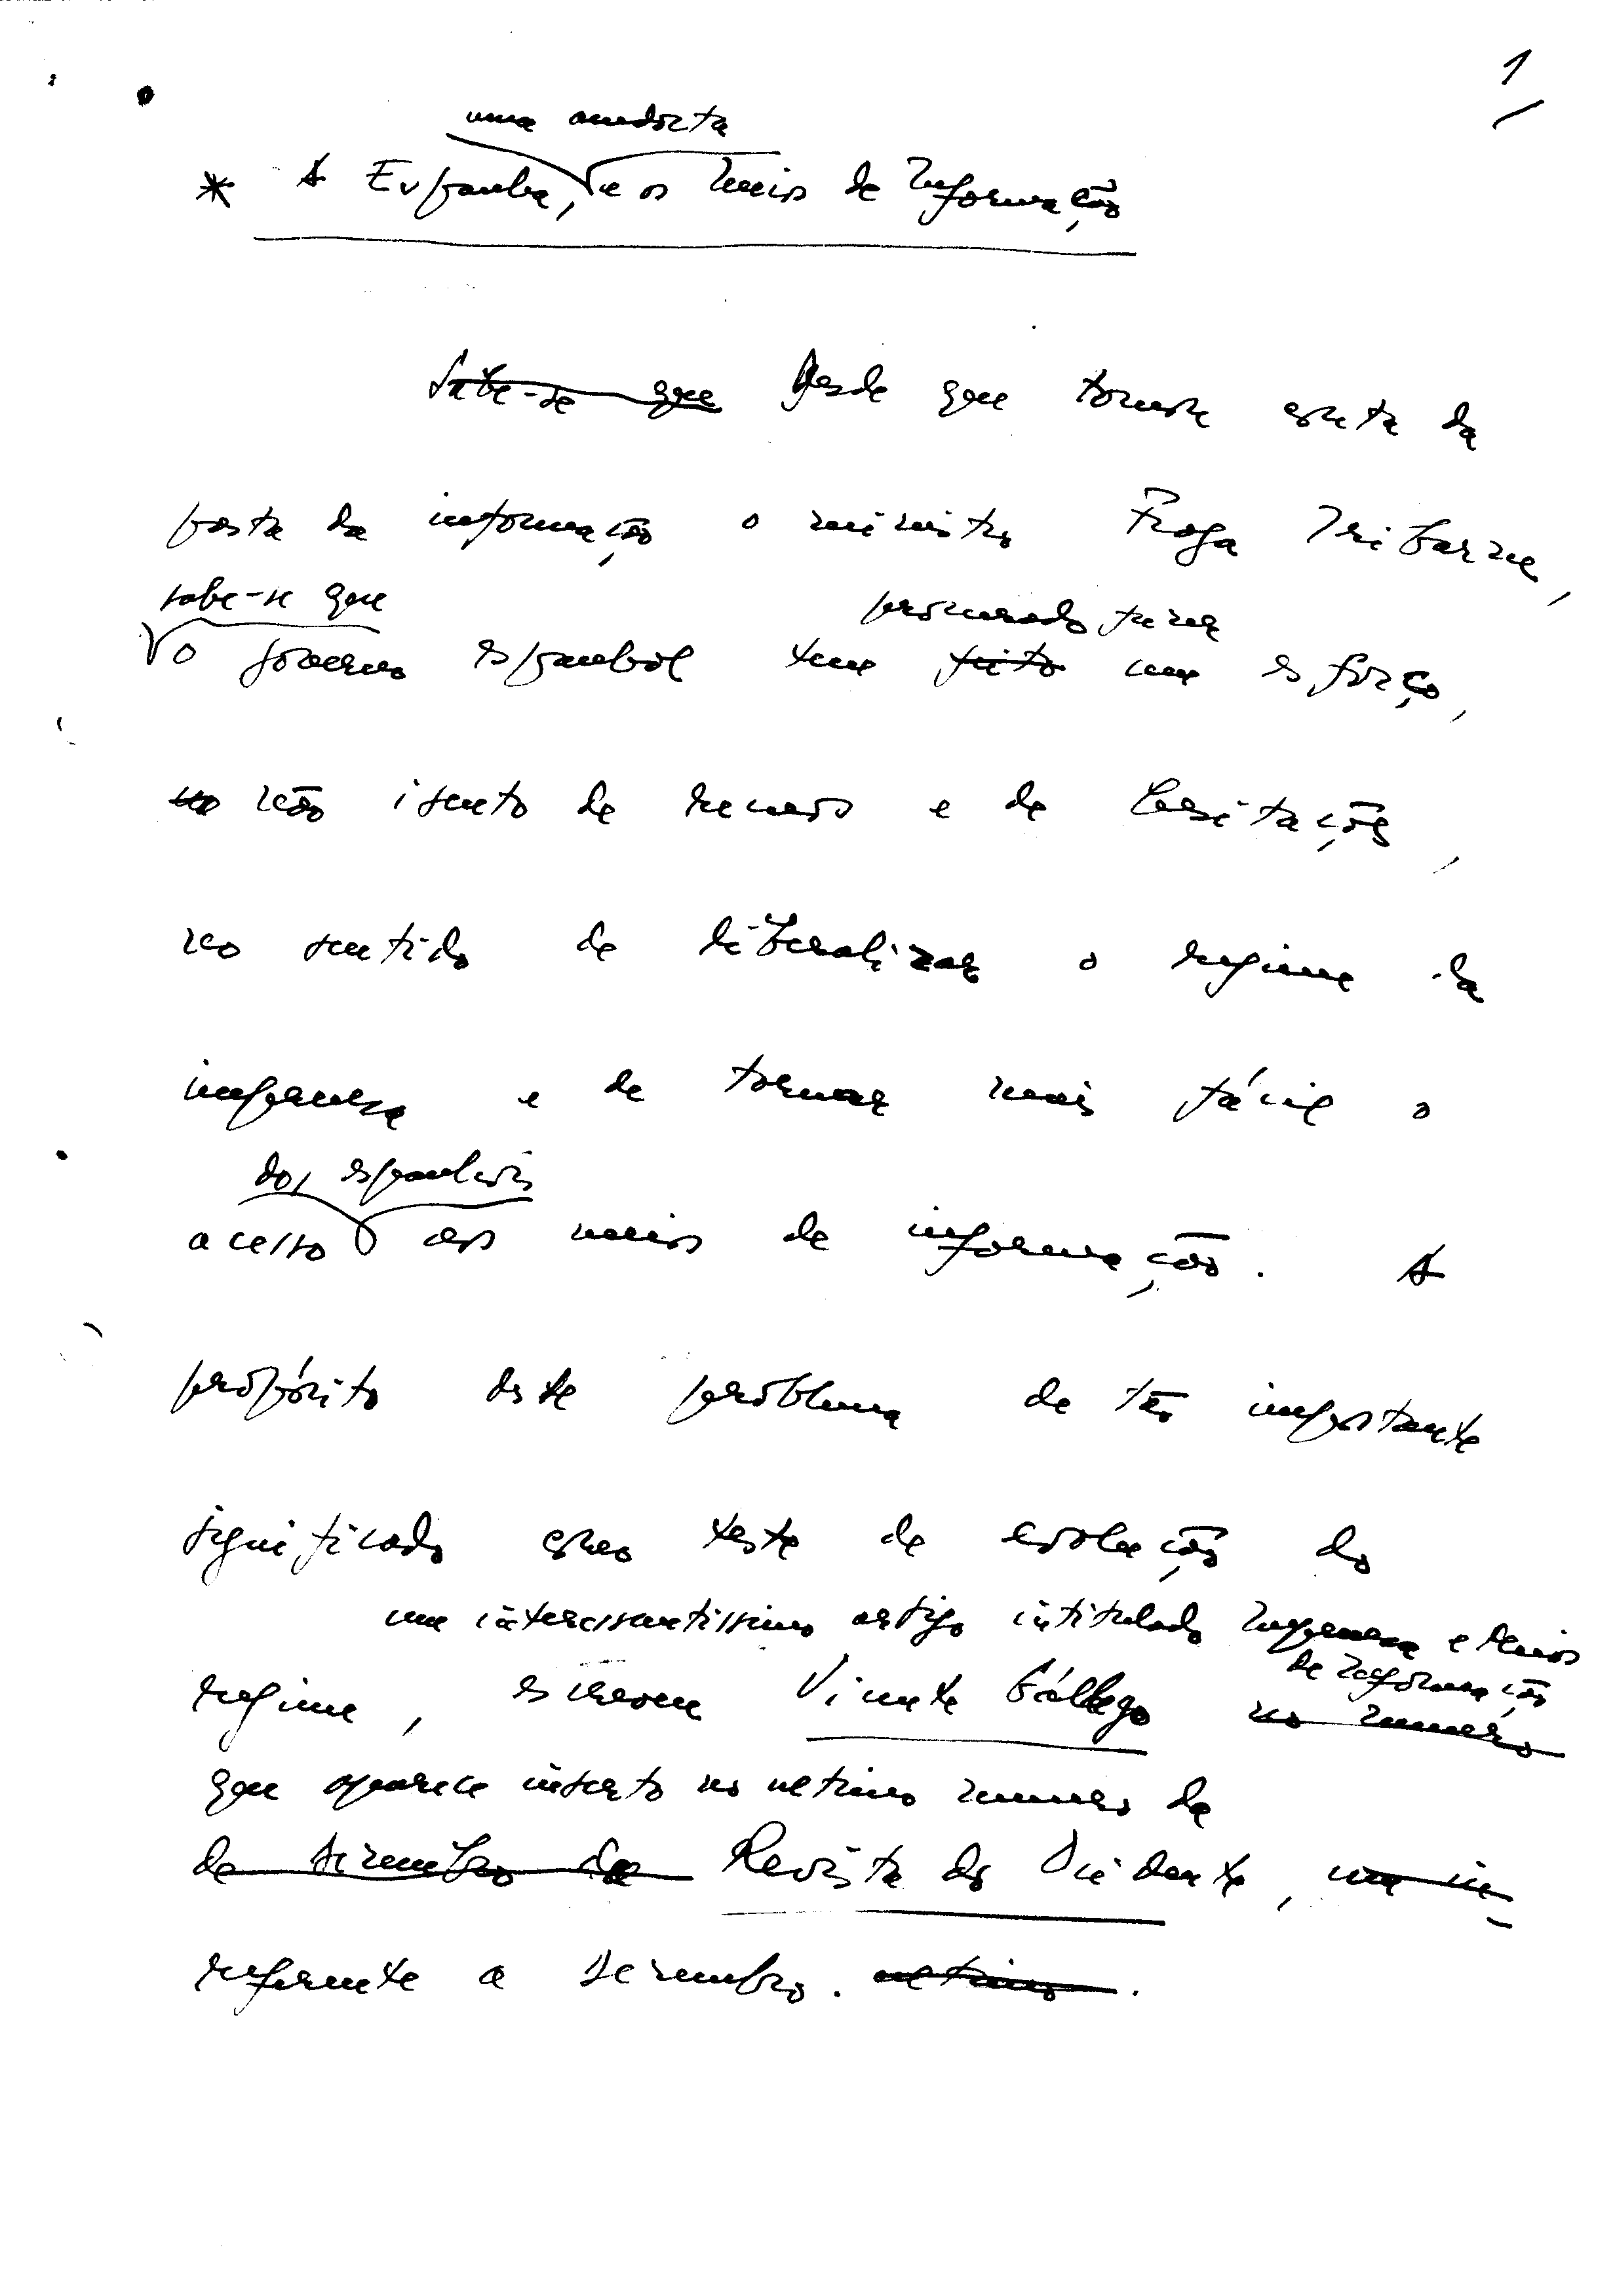 1
uma anedocta
* A Espanha, e os Meios de Informação
Sabe-se que Desde que tomou conta da
pasta da informação o ministro Fraga Iribarne,
sabe-se que procurado fazer
o governo espanhol tem feito um esforço,
não isento de recuos e de hesitações,
no sentido de liberalizar o regime da
imprensa e de tornar mais fácil o
dos espanhóis
acesso aos meios de informação. A
propósito deste problema de tão importante
significado como teste de evolução do
um interessantíssimo artigo intitulado Imprensa e Meios
de Informação
regime, escreve Vicente Gállego no numero
que aparece inserto no ultimo numero da
de Dezembro da Revista do Ocidente, um in-
referente a Dezembro. ultimo.